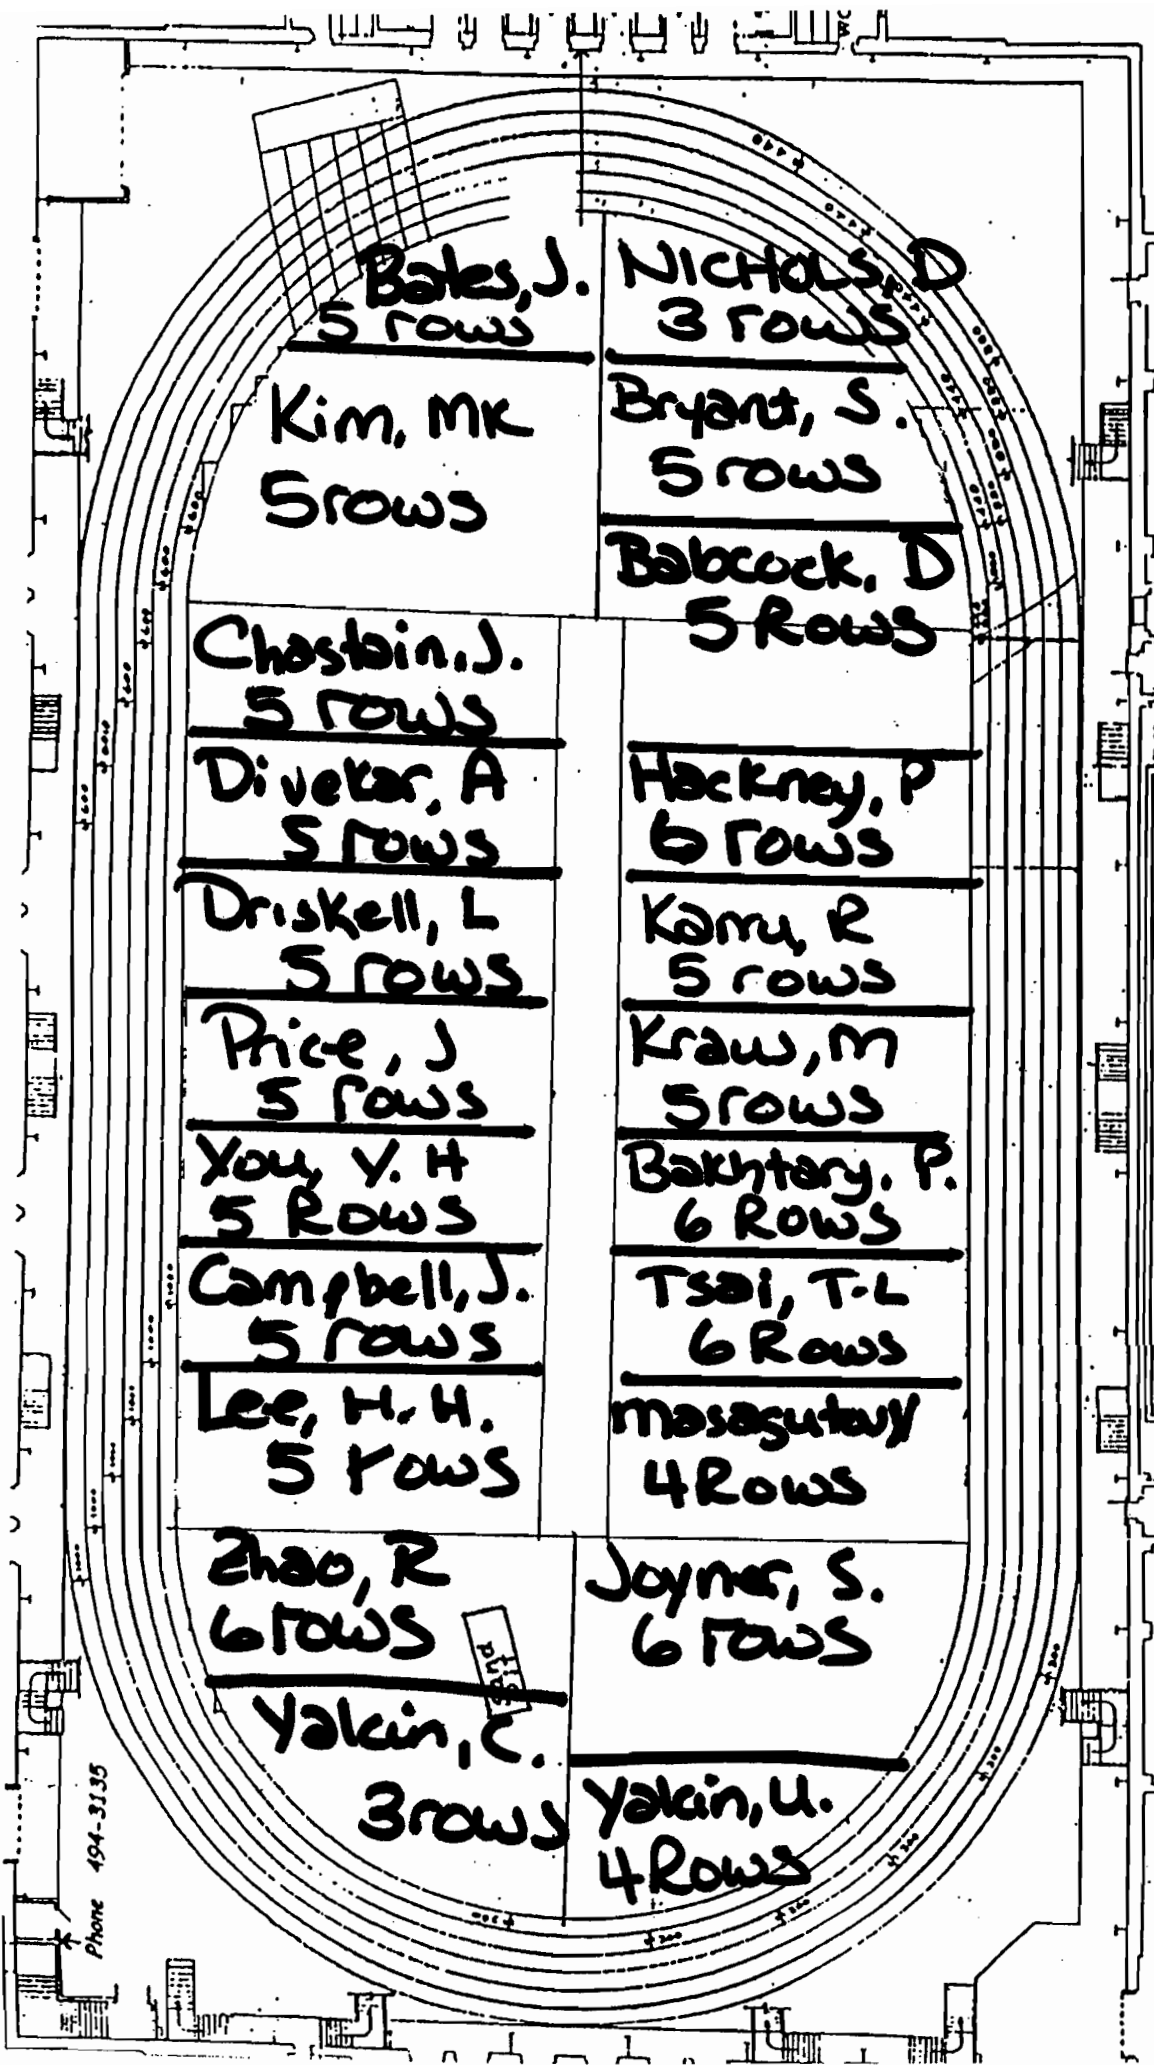 Bales, J.
5 rows
Kim, MK
5 rows
Chastain, J.
5 rows
Divekar, A
5 rows
Driskell, L
5 rows
Price, J
5 rows
You, Y. H
5 Rows
Campbell, J.
5 rows
Lee, H. H.
5 rows
Zhao, R
6 rows
Sand Pit
Yalcin, C.
3 rows
NICHOLS, D
3 rows
Bryant, S.
5 rows
Babcock, D
5 Rows
Hackney, P
6 rows
R
5 rows
M
5 rows
Bakhtary, P.
6 Rows
Tsai, T-L
6 Rows
4 Rows
Joyner, S.
6 rows
Yalcin, U.
4 Rows
Phone 494-3135